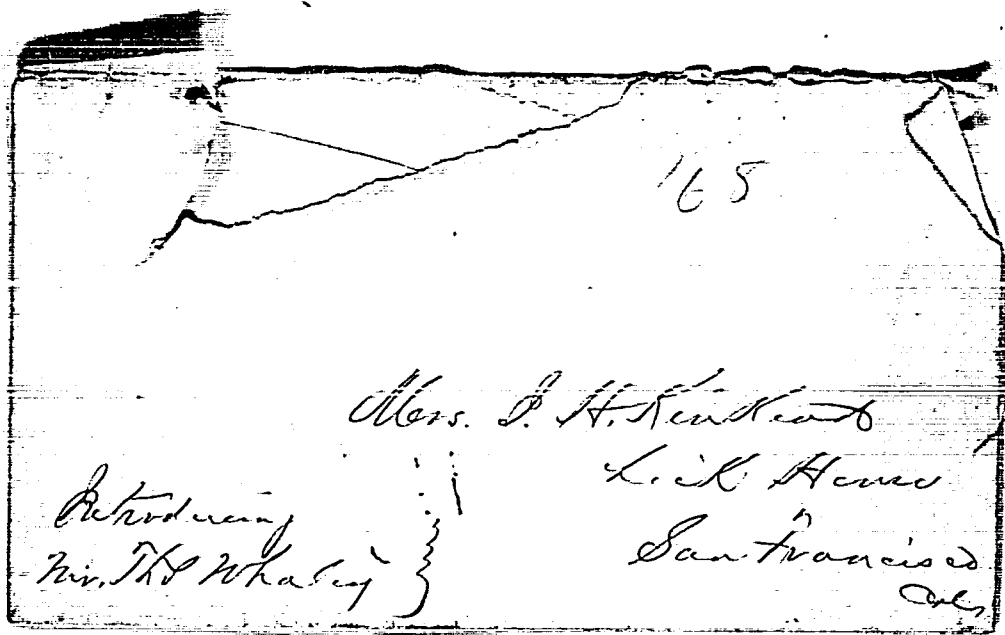 165
Mrs. J. H. Kinkead
Lick House
San Francisco
Cal.
Introducing
Mr. Thos Whaley